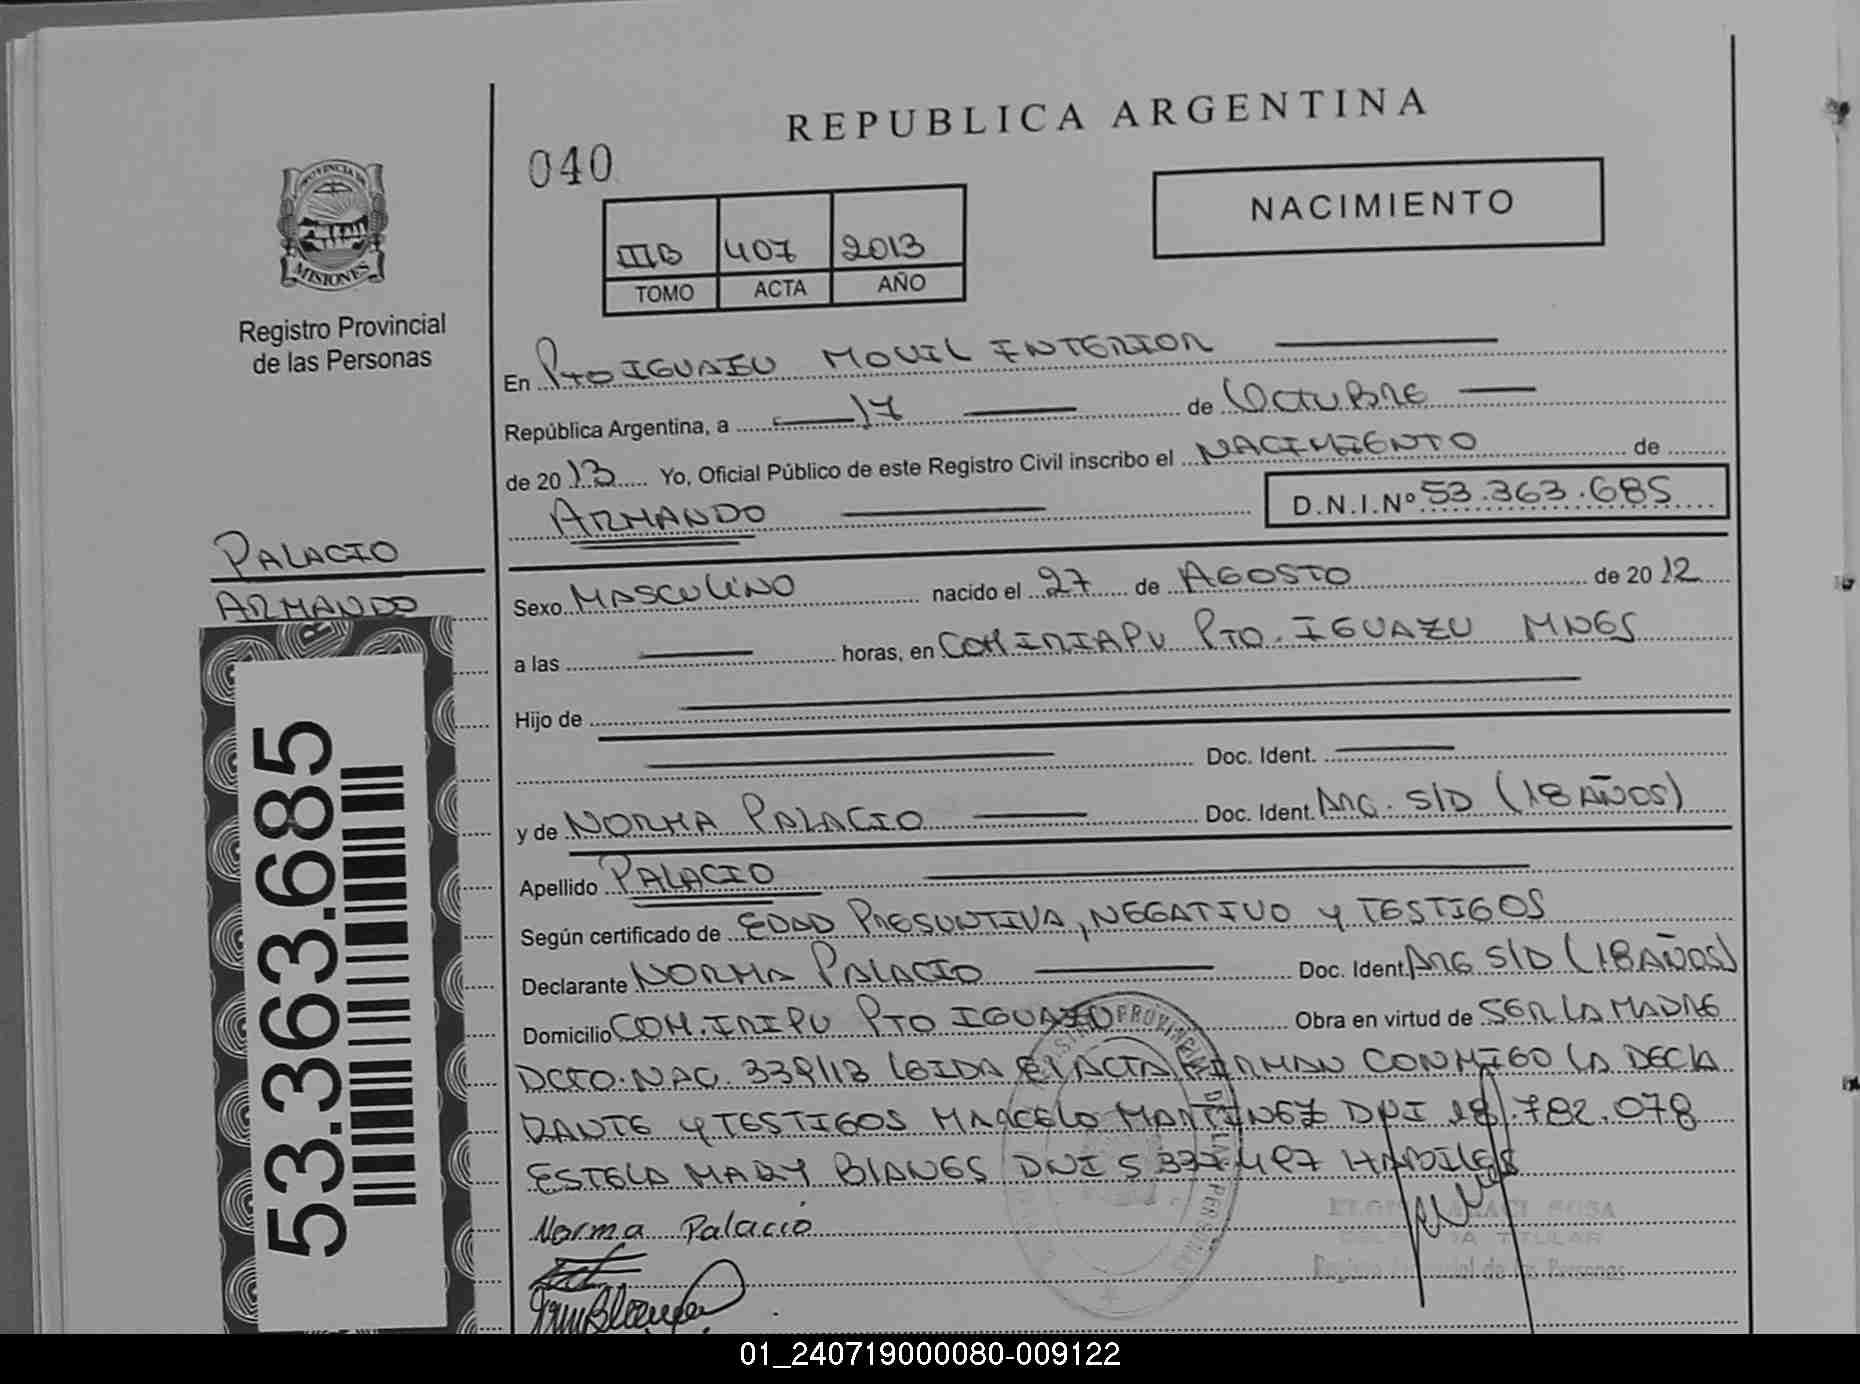 REPUBLICA ARGENTINA
040
NACIMIENTO
PROVINCIA DE
MISIONES
Registro Provincial
de las Personas
IIIB 407 2013
TOMO ACTA AÑO
En Pto IGUAZU MOVIL INTERIOR
República Argentina, a 17 de Octubre
de 2013 Yo, Oficial Público de este Registro Civil inscribo el NACIMIENTO de
ARMANDO D.N.I.Nº 53.363.685
PALACIO
ARMANDO
Sexo MASCULINO nacido el 27 de AGOSTO de 2012
a las horas, en COM.INIAPU PTO. IGUAZU MNES
Hijo de
Doc. Ident.
y de NORMA PALACIO Doc. Ident. ARG. S/D (18 AÑOS)
Apellido PALACIO
Según certificado de EDAD PRESUNTIVA, NEGATIVO y TESTIGOS
Declarante NORMA PALACIO Doc. Ident. ARG S/D (18 AÑOS)
Domicilio COM. INIPU PTO IGUAZU Obra en virtud de SER LA MADRE
DCTO. NAC. 339/13 LEIDA EL ACTA FIRMAN CONMIGO LA DECLA
RANTE y TESTIGOS MARCELO MARTINEZ DNI 18.782.078
ESTELA MARY BLANES DNI 5.337.497 HABILES
Norma Palacio
53.363.685
SOSA
TITULAR
Registro Provincial de las Personas
01_240719000080-009122